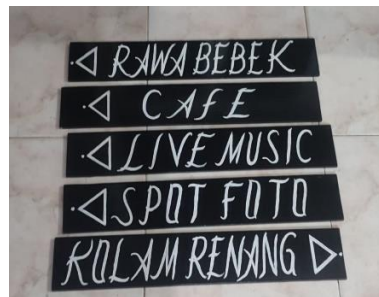 RAWA BEBEK
CAFE
LIVE MUSIC
SPOT FOTO
KOLAM RENANG